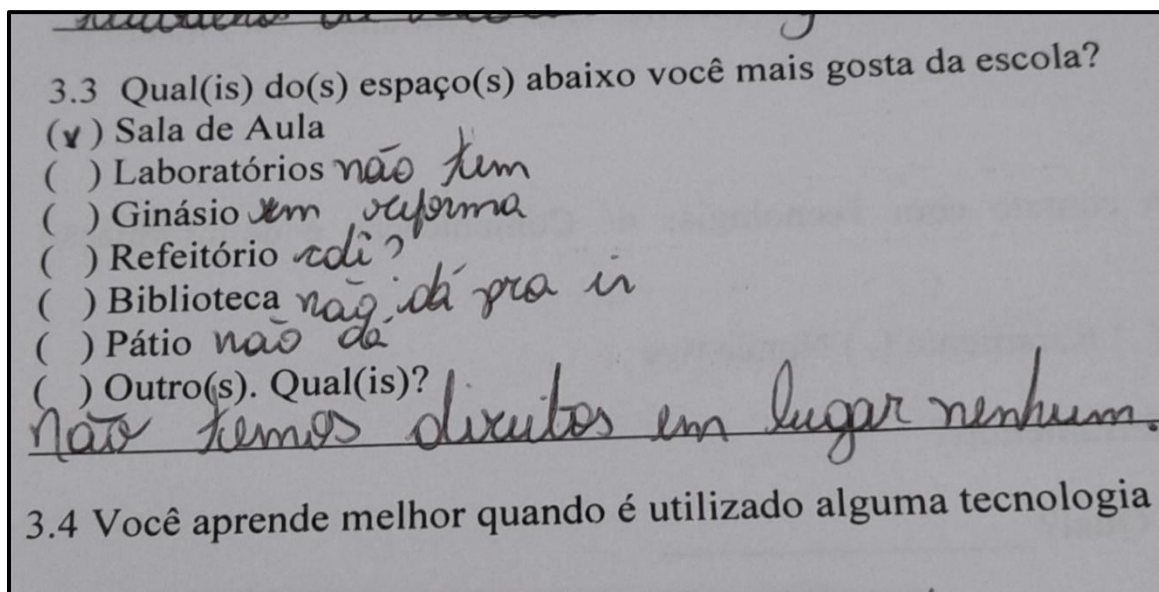 3.3 Qual(is) do(s) espaço(s) abaixo você mais gosta da escola?
(x) Sala de Aula
( ) Laboratórios não tem
( ) Ginásio em reforma
( ) Refeitório
( ) Biblioteca não dá pra ir
( ) Pátio não dá
( ) Outro(s). Qual(is)?
não temos direitos em lugar nenhum.
3.4 Você aprende melhor quando é utilizado alguma tecnologia